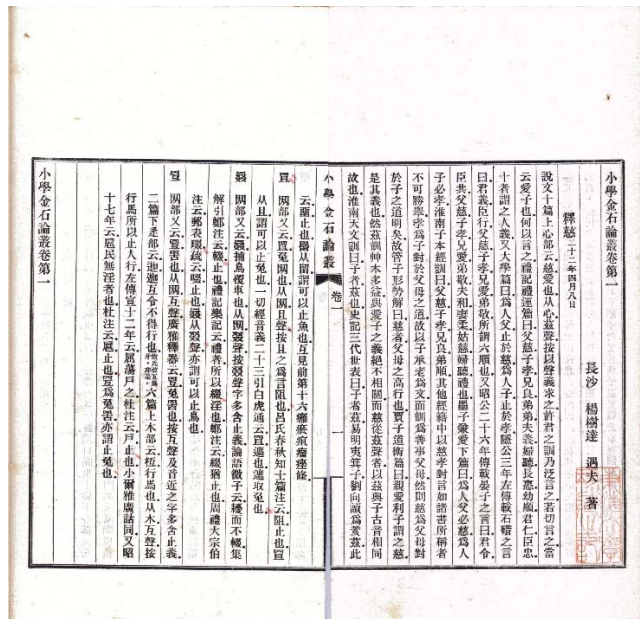 小學金石論叢卷第一
長沙 楊樹達 遇夫 著
釋慈 二十二年四月八日
說文十篇上心部云慈愛也从心茲聲按以聲義求之許君之訓乃泛言之若切言之當
云愛子也何以言之禮記禮運篇曰父慈子孝兄良弟弟夫義婦聽長惠幼順君仁臣忠
十者謂之人義又大學篇曰爲人父止於慈爲人子止於孝隱公三年左傳載石碏之言
曰君義臣行父慈子孝兄愛弟敬所謂六順也又昭公二十六年傳載晏子之言曰君令
臣共父慈子孝兄愛弟敬夫和妻柔姑慈婦聽禮也墨子兼愛下篇曰爲人父必慈爲人
子必孝淮南子本經訓曰父慈子孝兄良弟順其他經籍中以慈孝對言如諸書所稱者
不可勝舉孝爲子對於父母之道故以子承老爲文而訓爲善事父母然則慈爲父母對
於子之道明矣故管子形勢解曰慈者父母之高行也賈子道術篇曰親愛利子謂之慈
是其義也然茲訓艸木多益與愛子之義絕不相關而慈从茲聲者以茲與子古音相同
故也淮南天文訓曰子者茲也史記三代世表曰子者茲易明夷箕子劉向讀爲荄茲此
小學金石論叢 卷一 一
云罶止也罶从留謂可以止魚也互見前第十六癰瘀痕瘤痤條
罝 网部又云罝兔网也从网且聲按且之爲言阻也呂氏春秋知士篇注云阻止也罝
从且謂可以止兔也一切經音義二十三引白虎通云罝遮也遮取兔也
罬 网部又云罬捕鳥覆車也从网叕聲按叕聲字多含止義論語微子云耰而不輟集
解引鄭注云輟止也禮記樂記云禮者所以綴淫也鄭注云綴猶止也周禮大宗伯
注云郵表畷疏云畷止也罬从叕聲亦謂可以止鳥也
罟 网部又云罟也从网互聲廣雅釋器云罟兔罟也按互聲及音近之字多含止義
二篇下辵部云迦迦互令不得行也六篇上木部云枑行馬也从木互聲按
行馬所以止人行左傳宣十二年云屈蕩戶之杜注云戶止也小爾雅廣詁同又昭
十七年云扈民無淫者也杜注云扈止也罟爲兔罟亦謂止兔也
小學金石論叢卷第一